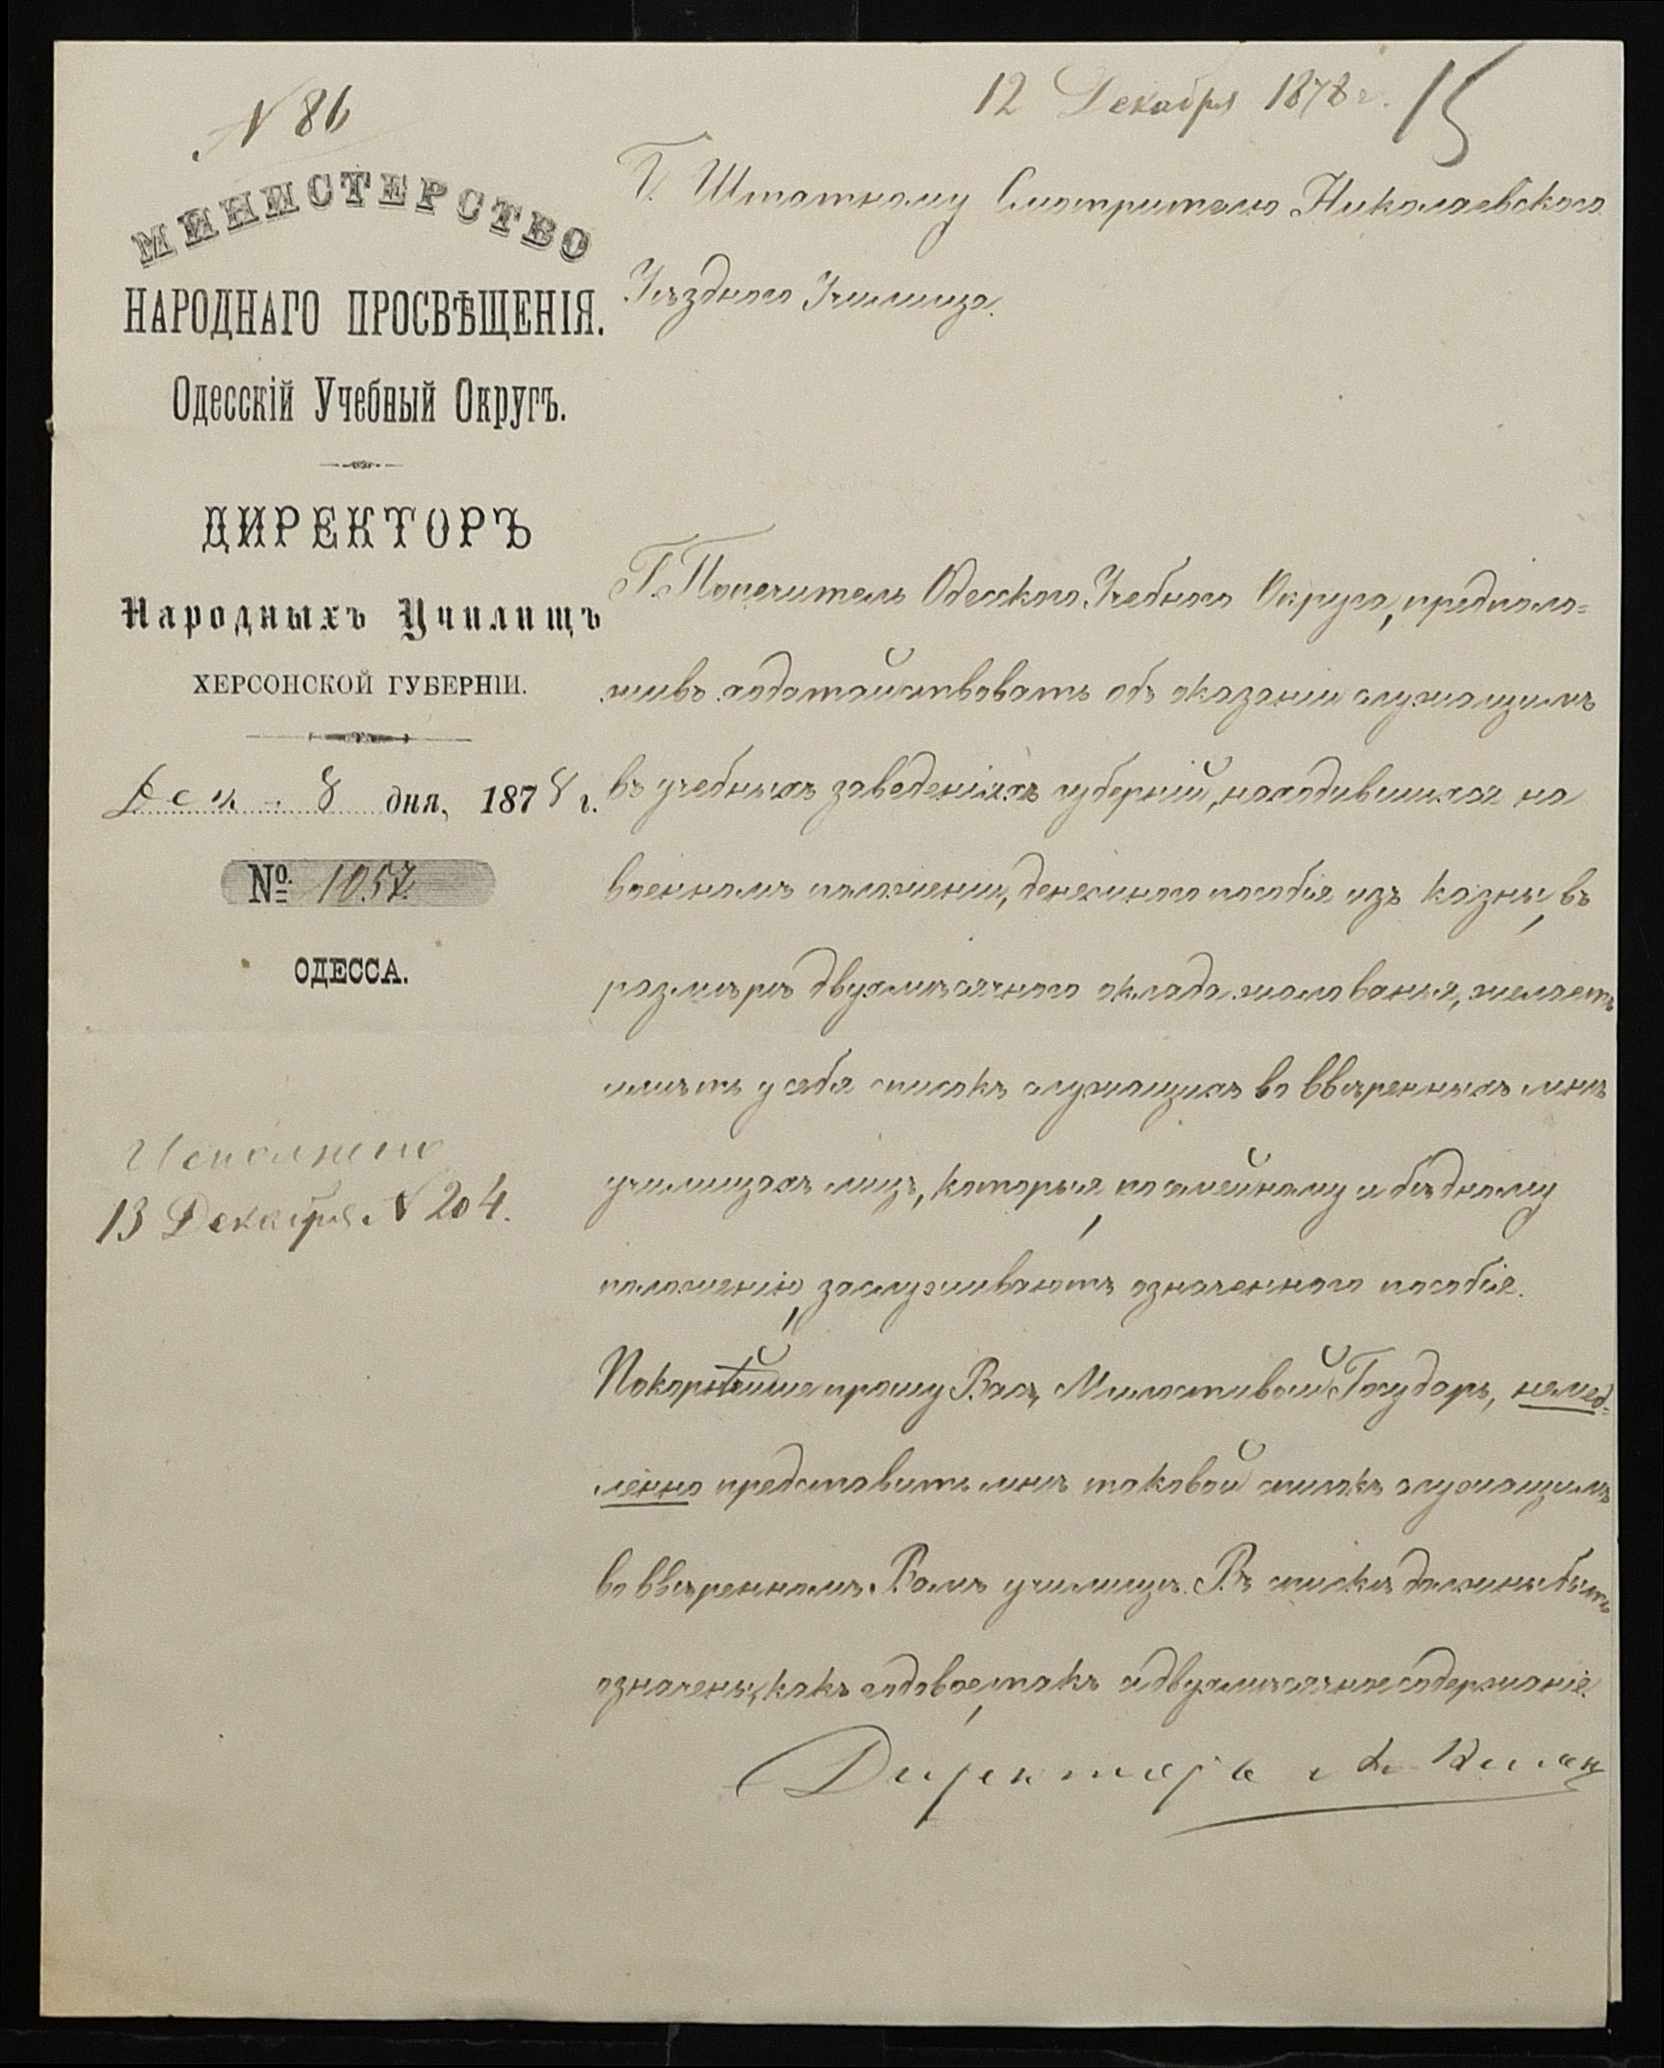 № 86
12 Декабря 1878 г.
15
МИНИСТЕРСТВО
НАРОДНАГО ПРОСВѢЩЕНІЯ.
Одесскій Учебный Округъ.
ДИРЕКТОРЪ
Народныхъ Училищъ
ХЕРСОНСКОЙ ГУБЕРНІИ.
Дек. 8 дня, 1878 г.
№ 1057
ОДЕССА.
Исполнено
13 Декабря № 204.
Г. Штатному Смотрителю Николаевскаго
Уѣзднаго Училища.
Г. Попечитель Одесскаго Учебнаго Округа, предполо=
живъ ходатайствовать объ оказаніи служащимъ
въ учебныхъ заведеніяхъ губерній, находившихся на
военномъ положеніи, денежнаго пособія изъ казны, въ
размѣрѣ двухмѣсячнаго оклада жалованья, желаетъ
имѣть у себя списокъ служащихъ во ввѣренныхъ мнѣ
училищахъ лицъ, которыя, по семейному и бѣдному
положенію, заслуживаютъ означеннаго пособія.
Покорнѣйше прошу Васъ, Милостивый Государь, немед=
ленно представить мнѣ таковой списокъ служащимъ
во ввѣренномъ Вамъ училищѣ. Въ спискѣ должны быть
означены, какъ годовое, такъ и двухмѣсячное содержаніе.
Директоръ